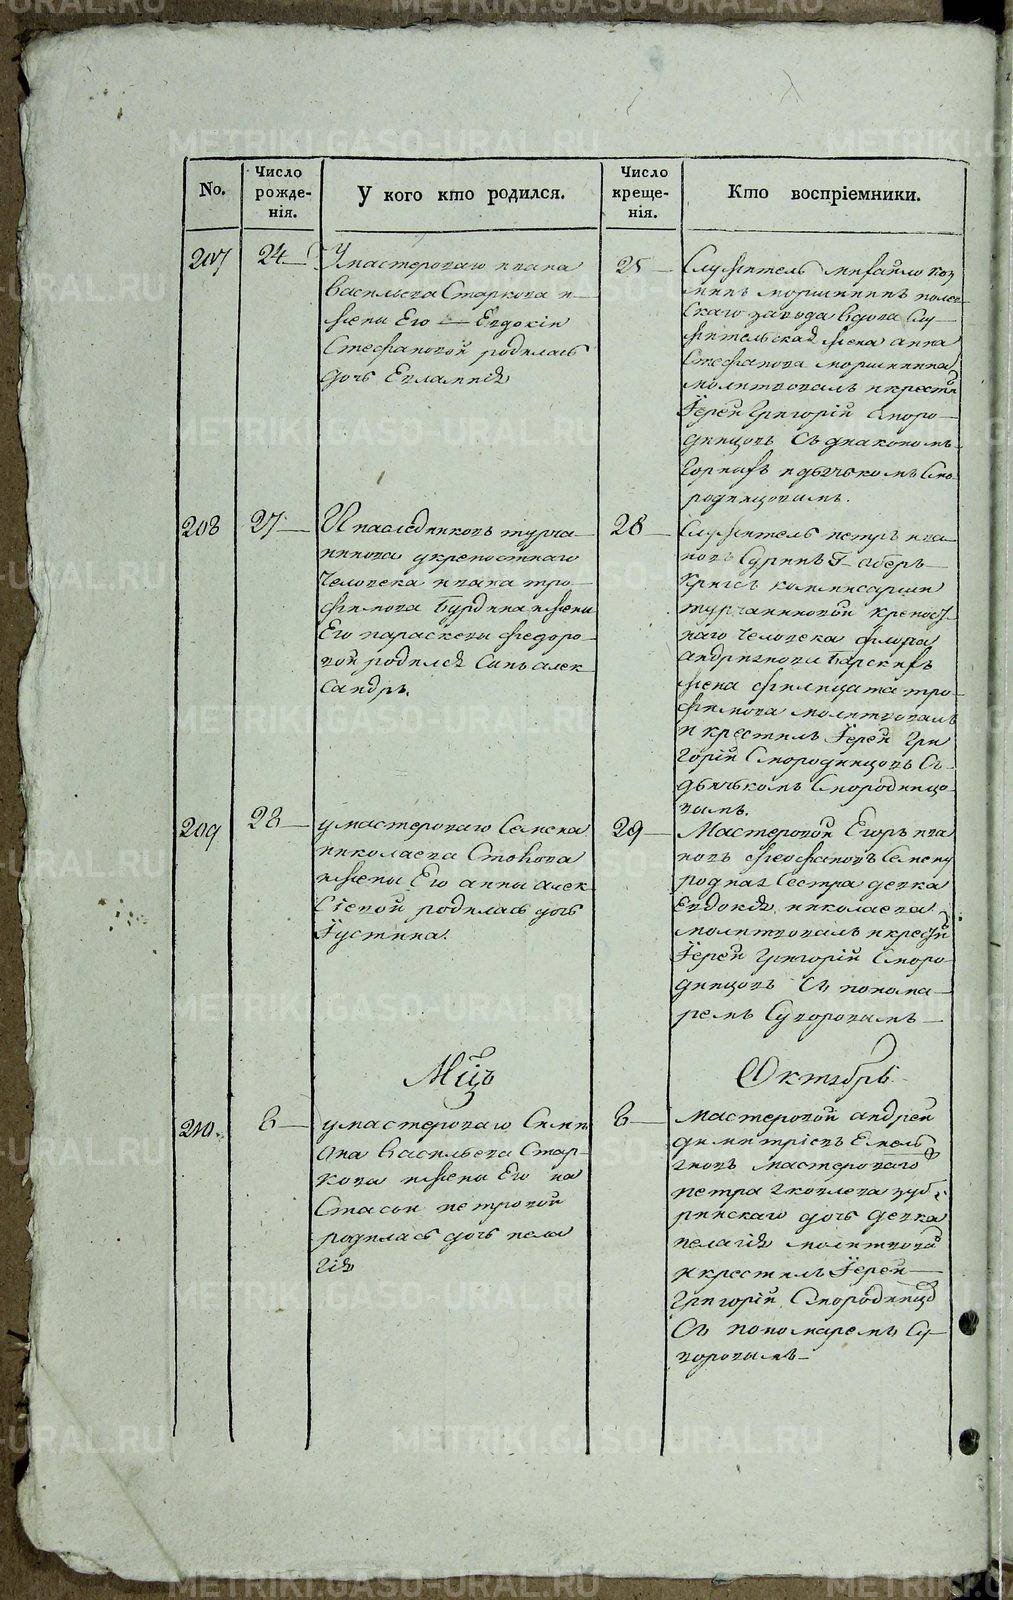 No.
Число рожде-
нія.
У кого кто родился.
Число креще-
нія.
Кто воспріемники.
207
24
Умастероваго ивана
васильева Старкова и
жены Его Евдокіи
Стефановой родилась
дочь Евлампія
25
Служитель михайло коз
минъ моршининъ полев
скаго завода вдова Слу
жительская жена анна
Стефанова моршинина
молитвовалъ икрестил
Іерей Григорій Сморо
динцовъ Съ диакономъ
идьячкомъ Смо
родинцовымъ.
208
27
Унаследниковъ турча
нинова укрепостнаго
человека ивана тро
фимова Бурдина жены
Его параскевы федоро
вой родился Сынъ алек
Сандръ.
28
Служитель петръ ива
новъ Г
турчаниновой крепост
наго человека флора
андрианова Барскихъ
жена филицата тро
фимова молитвовалъ
и крестилъ Іерей Гри
горій Смородинцовъ Съ
дьячькомъ Смородинцо
вымъ.
209
28
умастероваго Семена
николаева
ижены Его анны алек
Сіевой родилась дочь
Іустина.
29
Мастеровой Егоръ ива
новъ феофановъ Семену
родная Сестра девка
Евдокія николаева
молитвовалъ икрестил
Іерей Григорій Сморо
динцовъ Съ понома
ремъ Суворовымъ
Мцъ
Октябрь
210.
6
умастероваго Сими
она васильева Стар
кова ижены Его на
Стасьи петровой
родилась дочь пела
гія
6
мастеровой андрей
димитріевъ Емель
яновъ мастероваго
петра яковлева зуб
ринскаго дочь девка
пелагія молитвовал
икрестилъ Іерей
Григорій Смородинцов
Съ пономаремъ Су
воровымъ
METRIKI.GASO-URAL.RU